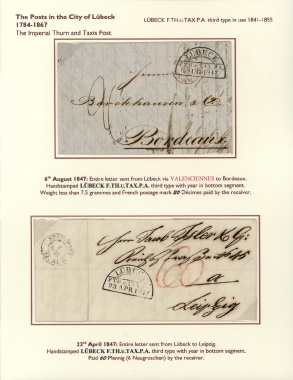 The Posts in the City of Lübeck
1784-1867
The Imperial Thurn and Taxis Post
LÜBECK F.TH.u.TAX.P.A. third type in use 1841-1855
LÜBECK
Bordeaux
6th August 1847: Entire letter sent from Lübeck via VALENCIENNES to Bordeaux.
Handstamped LÜBECK F.TH.u.T.A.X.P.A. third type with year in bottom segment.
Weight less than 7.5 grammes and French postage mark 20 Décimes paid by the receiver.
LÜBECK
23 APR 1847
Herrn Jacob
No 45
a
Leipzig
23rd April 1847: Entire letter sent from Lübeck to Leipzig.
Handstamped LÜBECK F.TH.u.T.A.X.P.A. third type with year in bottom segment.
Paid 60 Pfennig (6 Neugroschen) by the receiver.